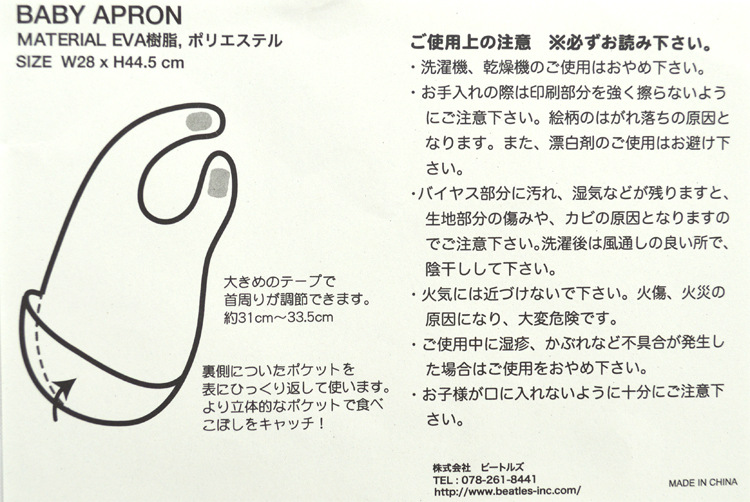 BABY APRON
MATERIAL EVA樹脂, ポリエステル
SIZE W28 x H44.5 cm
大きめのテープで
首周りが調節できます。
約31cm～33.5cm
裏側についたポケットを
表にひっくり返して使います。
より立体的なポケットで食べ
こぼしをキャッチ！
ご使用上の注意 ※必ずお読み下さい。
・洗濯機、乾燥機のご使用はおやめ下さい。
・お手入れの際は印刷部分を強く擦らないよう
にご注意下さい。絵柄のはがれ落ちの原因と
なります。また、漂白剤のご使用はお避け下
さい。
・バイヤス部分に汚れ、湿気などが残りますと、
生地部分の傷みや、カビの原因となりますの
でご注意下さい。洗濯後は風通しの良い所で、
陰干しして下さい。
・火気には近づけないで下さい。火傷、火災の
原因になり、大変危険です。
・ご使用中に湿疹、かぶれなど不具合が発生し
た場合はご使用をおやめ下さい。
・お子様が口に入れないように十分にご注意下
さい。
株式会社 ビートルズ
TEL : 078-261-8441
http://www.beatles-inc.com/
MADE IN CHINA